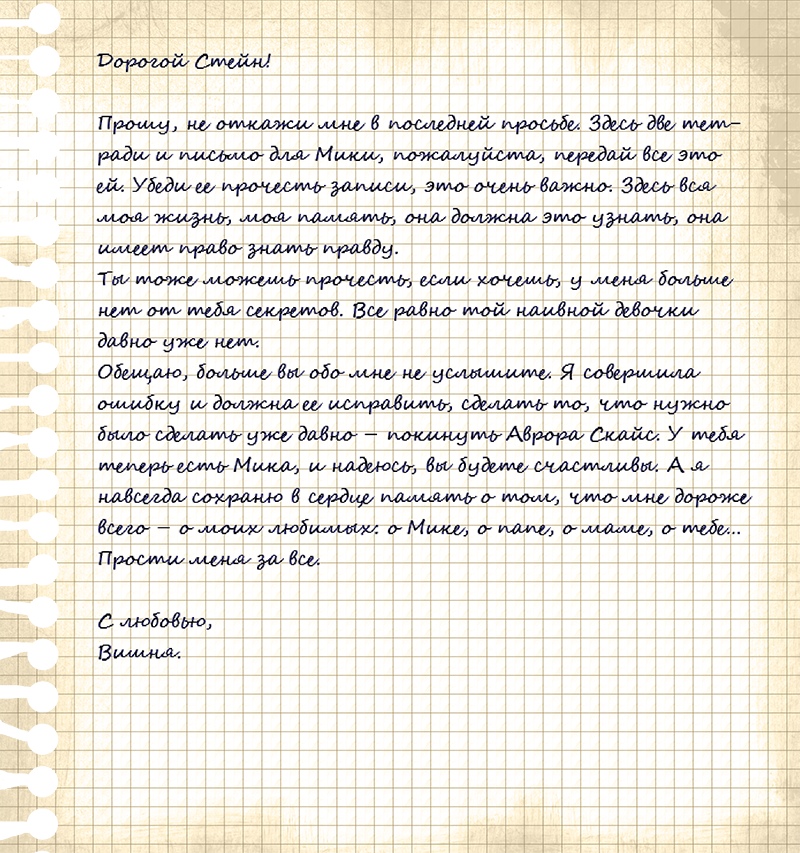 Дорогой Стейн!
Прошу, не откажи мне в последней просьбе. Здесь две тет-
ради и письмо для Мики, пожалуйста, передай все это
ей. Убеди ее прочесть записи, это очень важно. Здесь вся
моя жизнь, моя память, она должна это узнать, она
имеет право знать правду.
Ты тоже можешь прочесть, если хочешь, у меня больше
нет от тебя секретов. Все равно той наивной девочки
давно уже нет.
Обещаю, больше вы обо мне не услышите. Я совершила
ошибку и должна ее исправить, сделать то, что нужно
было сделать уже давно – покинуть Аврора Скайс. У тебя
теперь есть Мика, и надеюсь, вы будете счастливы. А я
навсегда сохраню в сердце память о том, что мне дороже
всего – о моих любимых: о Мике, о папе, о маме, о тебе...
Прости меня за все.
С любовью,
Вишня.